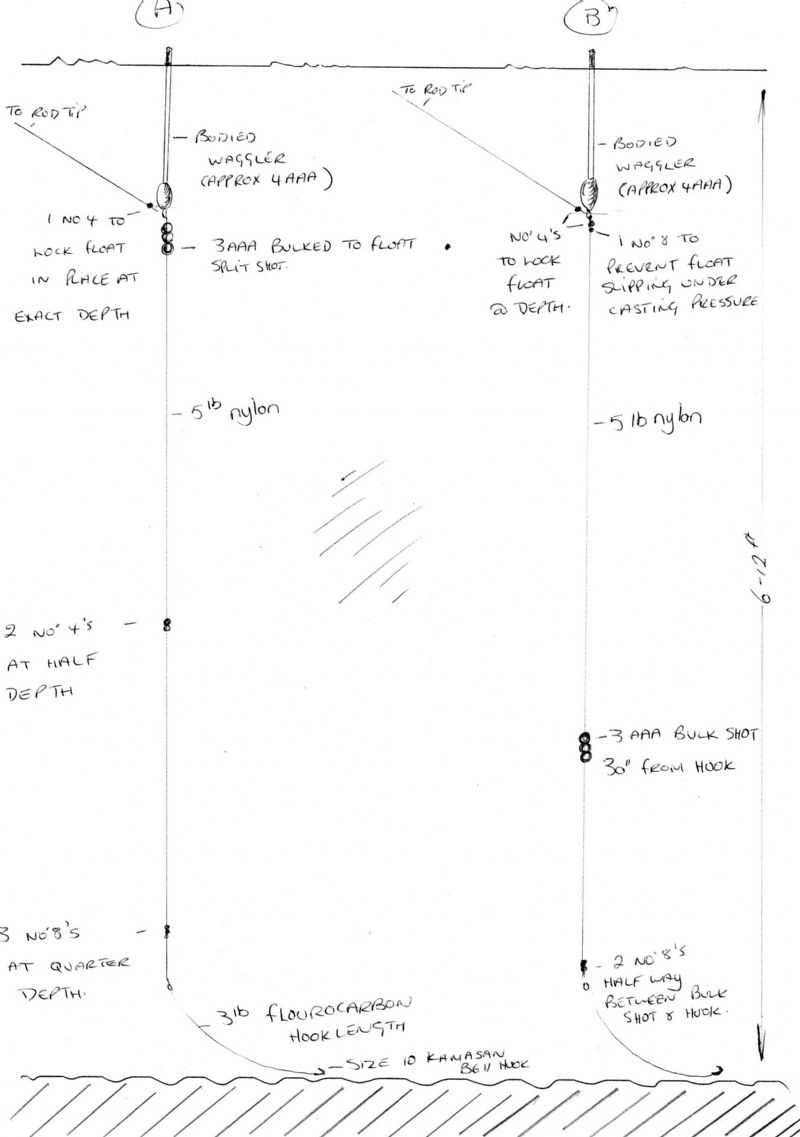 A
TO ROD TIP
BODIED
WAGGLER
(APPROX 4AAA)
1 NO 4 TO
LOCK FLOAT
IN PLACE AT
EXACT DEPTH
3AAA BULKED TO FLOAT
SPLIT SHOT.
5lb nylon
2 NO° 4'S
AT HALF
DEPTH
3 NO°8'S
AT QUARTER
DEPTH.
3lb FLOUROCARBON
HOOKLENGTH
SIZE 10 KAMASAN
B611 HOOK
B
TO ROD TIP
BODIED
WAGGLER
(APPROX 4AAA)
NO° 4'S
TO LOCK
FLOAT
@ DEPTH.
1 NO°8 TO
PREVENT FLOAT
SLIPPING UNDER
CASTING PRESSURE
5lb nylon
6-12 ft
3 AAA BULK SHOT
30" FROM HOOK
2 NO°8'S
HALF WAY
BETWEEN BULK
SHOT & HOOK.